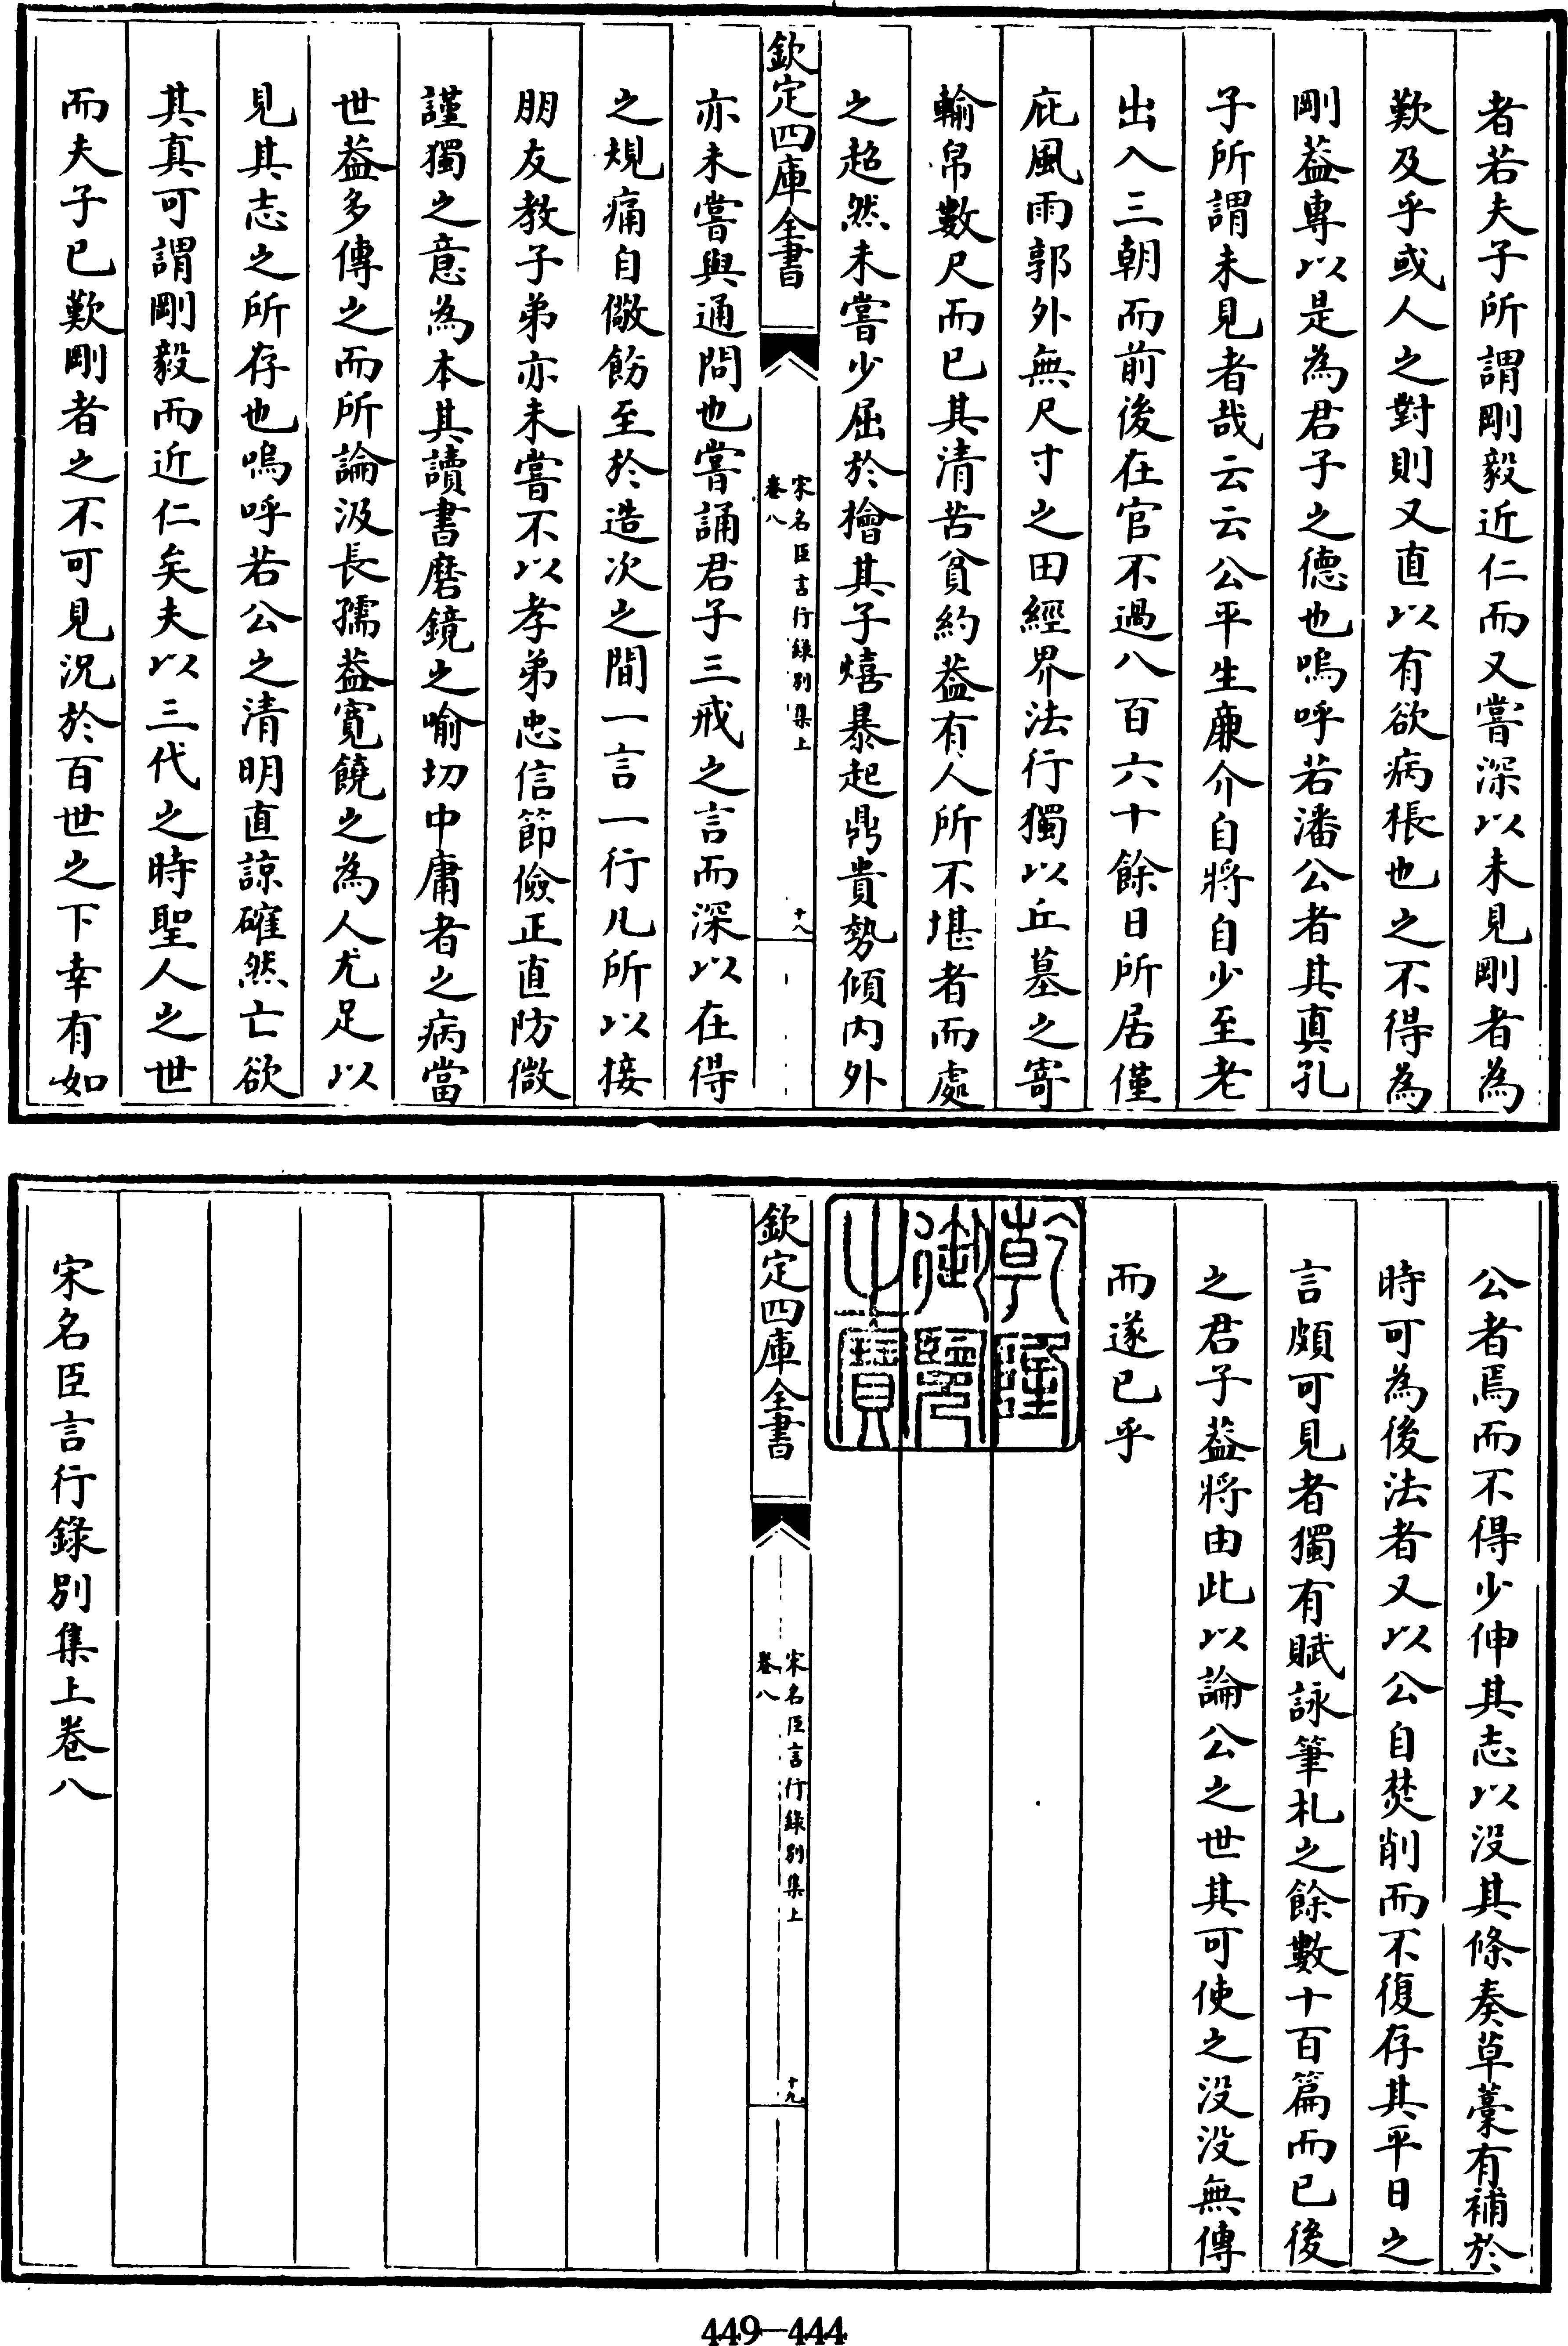 者若夫子所謂剛毅近仁而又嘗深以未見剛者為
歎及乎或人之對則又直以有欲病棖也之不得為
剛葢專以是為君子之德也嗚呼若潘公者其真孔
子所謂未見者哉云云公平生廉介自將自少至老
出入三朝而前後在官不過八百六十餘日所居僅
庇風雨郭外無尺寸之田經界法行獨以丘墓之寄
輸帛數尺而已其清苦貧約葢有人所不堪者而處
之超然未嘗少屈於檜其子熺暴起鼎貴勢傾内外
欽定四庫全書
宋名臣言行録别集上
卷八
十八
亦未嘗與通問也嘗誦君子三戒之言而深以在得
之規痛自儆飭至於造次之間一言一行凡所以接
朋友教子弟亦未嘗不以孝弟忠信節儉正直防微
謹獨之意為本其讀書磨鏡之喻切中庸者之病當
世葢多傳之而所論汲長孺葢寛饒之為人尤足以
見其志之所存也嗚呼若公之清明直諒確然亡欲
其真可謂剛毅而近仁矣夫以三代之時聖人之世
而夫子已歎剛者之不可見況於百世之下幸有如
公者焉而不得少伸其志以没其條奏草藳有補於
時可為後法者又以公自焚削而不復存其平日之
言頗可見者獨有賦詠筆札之餘數十百篇而已後
之君子葢將由此以論公之世其可使之没没無傳
而遂已乎
乾隆
御覽
之寶
欽定四庫全書
宋名臣言行録别集上
卷八
十九
宋名臣言行錄别集上卷八
449-444